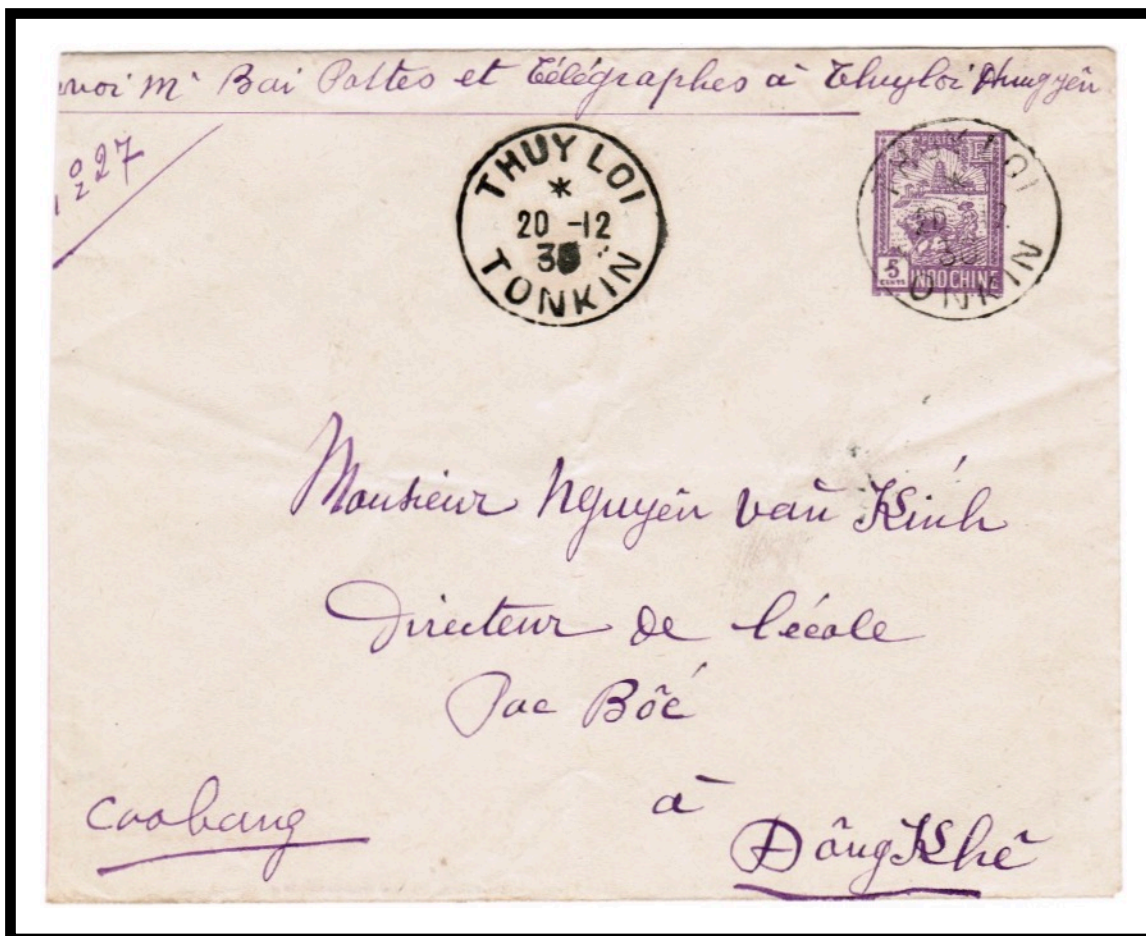 envoi Mr Bai Postes et Télégraphes à Thuyloi Hungyên
No 27
THUY LOI
*
20 -12
TONKIN
POSTES
5
CENTS
INDOCHINE
THUY LOI
*
TONKIN
Monsieur Nguyên Van Kinh
Directeur de l'école
Pac Bô
à
Caobang
Đông Khê